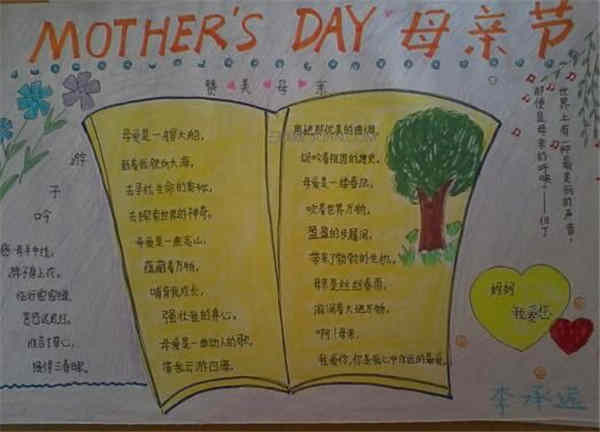 MOTHER'S DAY 母亲节
赞美母亲
游子吟
慈母手中线,
游子身上衣。
临行密密缝,
意恐迟迟归。
谁言寸草心,
报得三春晖。
母爱是一艘大船,
载着我驶向大海,
去寻找生命的奥秘,
去探索世界的神奇。
母爱是一座高山,
蕴藏着万物,
哺育我成长,
强壮我的身心。
母爱是一曲动人的歌,
带我云游四海。
用她那优美的曲调,
母爱是一缕春风,
吹着世界万物,
轻盈的步履间,
带来了勃勃的生机。
母亲是丝丝春雨,
滋润着大地万物,
啊!母亲,
我爱你,你是我心中永远的最爱。
世界上有一种最美丽的声音,
那便是母亲的呼唤"——但丁
妈妈
我爱您
李承远